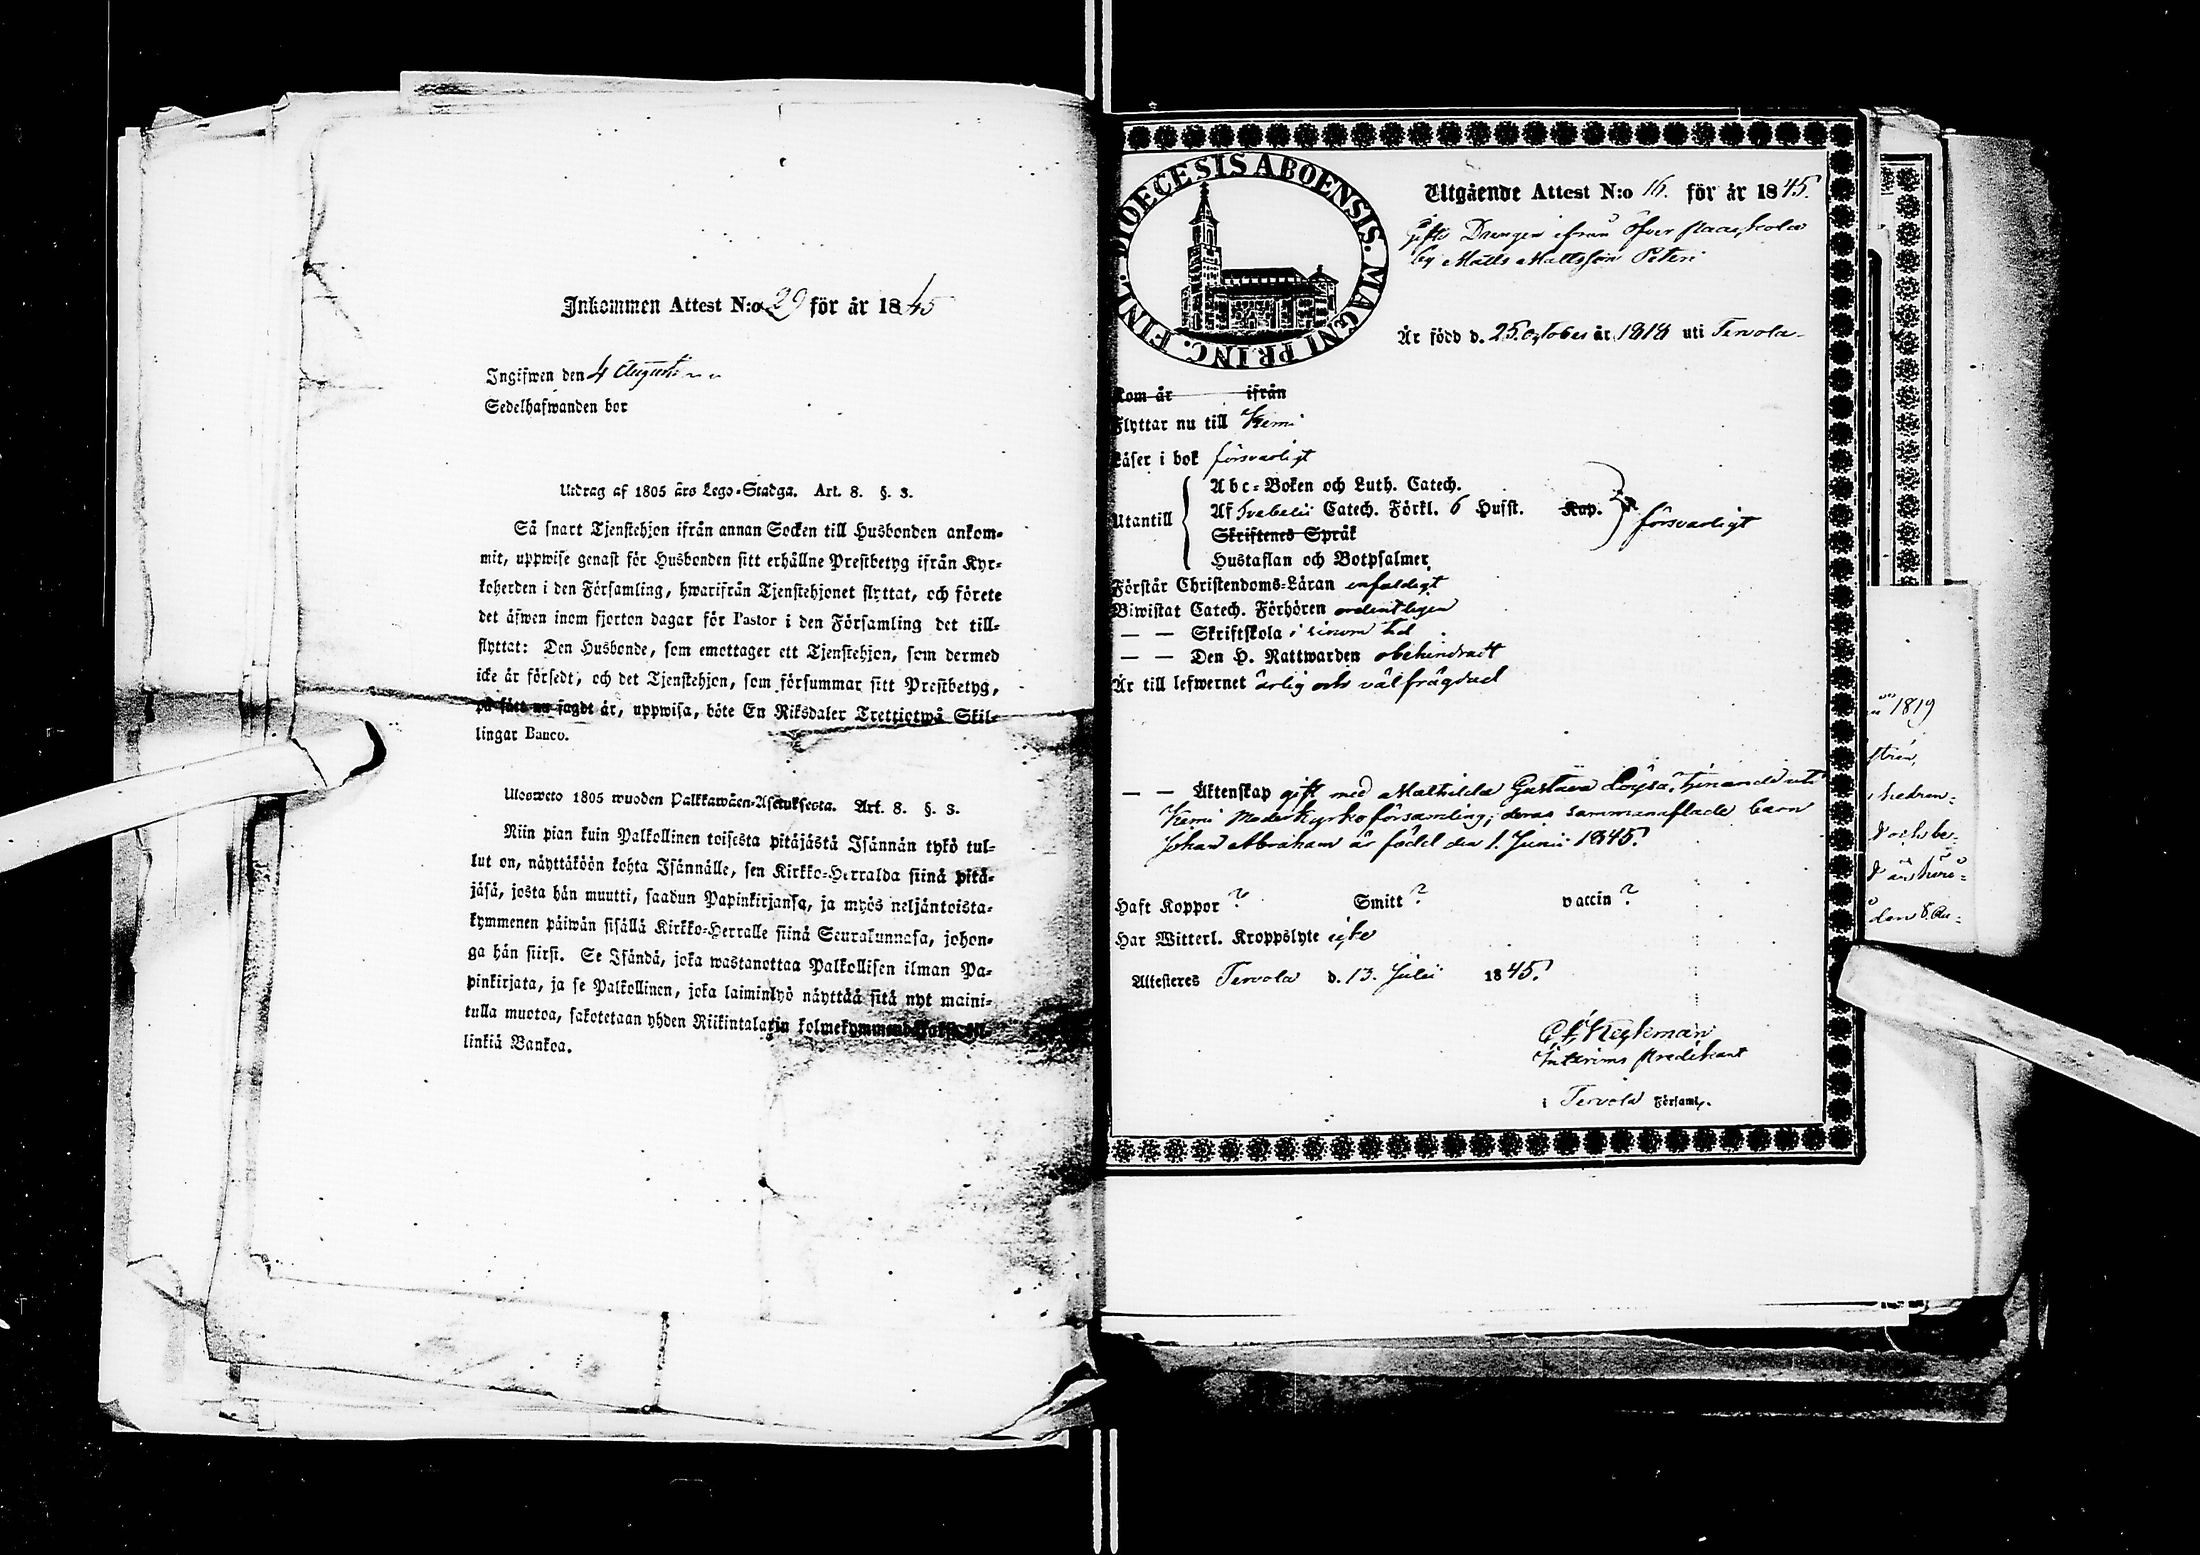 Inkommen Attest N:o 29 för år 1845
Ingifwen den 4 Augusti
Sedelhafwanden bor
Utdrag af 1805 års Lego-Stadga. Art. 8. §. 3.
Så snart Tjenstehjon ifrån annan Socken till Husbonden ankom-
mit, uppwise genast för Husbonden sitt erhållne Prestbetyg ifrån Kyr-
koherden i den Församling, hwarifrån Tjenstehjonet flyttat, och förete
det äfwen inom fjorton dagar för Pastor i den Församling det till-
flyttat: Den Husbonde, som emottager ett Tjenstehjon, som dermed
icke är försedt, och det Tjenstehjon, som försummar sitt Prestbetyg,
på sätt nu sagdt är, uppwisa, böte En Riksdaler Trettiotwå Skil-
lingar Banco.
Ulosweto 1805 wuoden Palkkawäen-Asetuksesta. Art. 8. §. 3.
Niin pian kuin Palkollinen toisesta pitäjästä Isännän tykö tul-
lut on, näyttäköön kohta Isännälle, sen Kirkko-Herralda siinä pitä-
jäsä, josta hän muutti, saadun Papinkirjansa, ja myös neljäntoista-
kymmenen päiwän sisällä Kirkko-Herralle siinä Seurakunnasa, johon-
ga hän siirsi. Se Isändä, joka wastanottaa Palkollisen ilman Pa-
pinkirjata, ja se Palkollinen, joka laiminlyö näyttää sitä nyt maini-
tulla muotoa, sakotetaan yhden Riikintalarin kolmekymmendä kaksi kil-
linkiä Bankoa.
DIOECESIS ABOENSIS. MAGNI PRINC. FINL.
Utgående Attest N:o 16. för år 1845.
gifte Drengen ifrån Öfver
by Matts Mattsson Peteri
Är född d. 25 October år 1818 uti Tervola
Kom år ifrån
Flyttar nu till Kemi
Läser i bok försvarligt
Utantill
Abc-Boken och Luth. Catech.
Af Svebelii Catech. Förkl. 6 Hufst. Kap.
försvarligt
Skriftenes Språk
Hustaflan och Botpsalmer.
Förstår Christendoms-Läran enfaldigt
Biwistat Catech. Förhören ordentligen
— — Skriftskola i sinom tid
— — Den H. Nattwarden obehindradt
Är till lefwernet ärlig och välfrägdad
— — Äktenskap gift med Mathilda Gustava Loysa, tjenande uti
Kemi Moderkyrkoförsamling; deras sammanaflade barn
Johan Abraham är född den 1. Junii 1845.
Haft Koppor ? Smitt ? vaccin ?
Har Witterl. Kroppslyte icke
Attesteres Tervola d. 13. Julii 1845.
Interims Predikant
i Tervola Församl.
1819
den 8. Au-